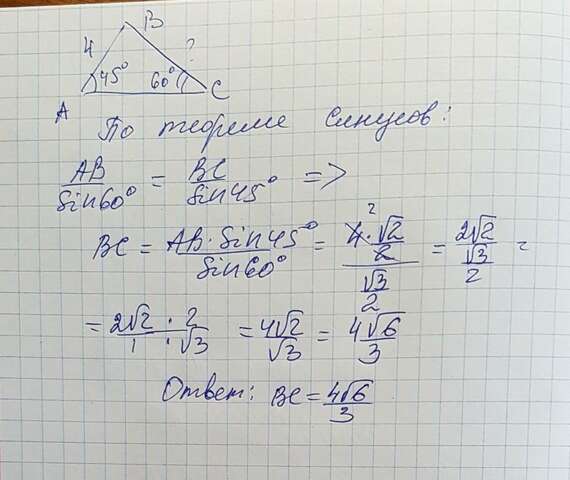 B
4 ?
45° 60°
A C
По теореме синусов:
AB/Sin60° = BC/Sin45° =>
BC = AB·Sin45°/Sin60° = (4·√2/2)/(√3/2) 2 = 2√2/(√3/2) =
= 2√2·2/1·√3 = 4√2/√3 = 4√6/3
Ответ: BC = 4√6/3